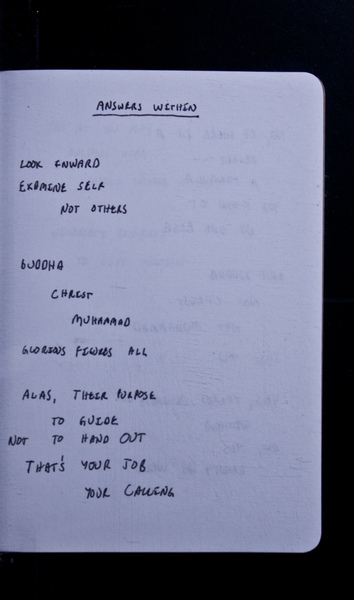 ANSWERS WITHIN
LOOK INWARD
EXAMINE SELF
NOT OTHERS
BUDDHA
CHRIST
MUHAMMAD
GLORIOUS FIGURES ALL
ALAS, THEIR PURPOSE
TO GUIDE
NOT TO HAND OUT
THAT'S YOUR JOB
YOUR CALLING